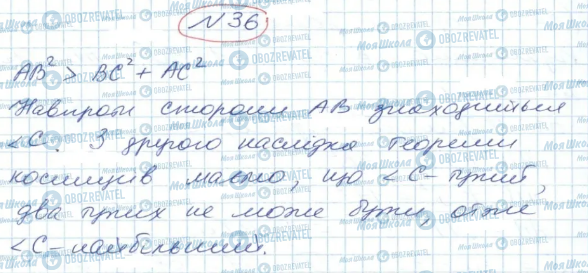 № 36
AB² > BC² + AC²
Навпроти сторони AB знаходиться
<C. З другого наслідка теореми
косинусів маємо, що <C – тупий,
два тупих не може бути, отже
<C – найбільший.